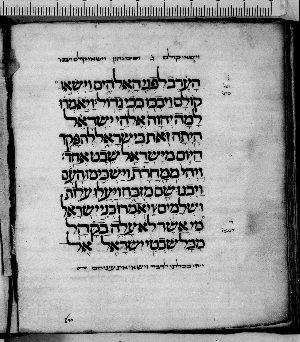 וישאו קולם
הערב לפני האלהים וישאו
קולם ויבכו בכי גדול ויאמרו
למה יהוה אלהי ישראל
היתה זאת בישראל להפקד
היום מישראל שבט אחד
ויהי ממחרת וישכימו העם
ויבנו שם מזבח ויעלו עלות
ושלמים ויאמרו בני ישראל
מי אשר לא עלה בקהל
מכל שבטי ישראל אל